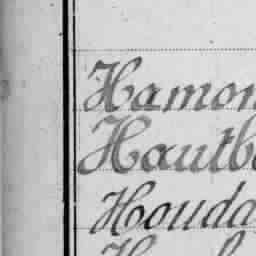 Hamon
Hautb
Houda